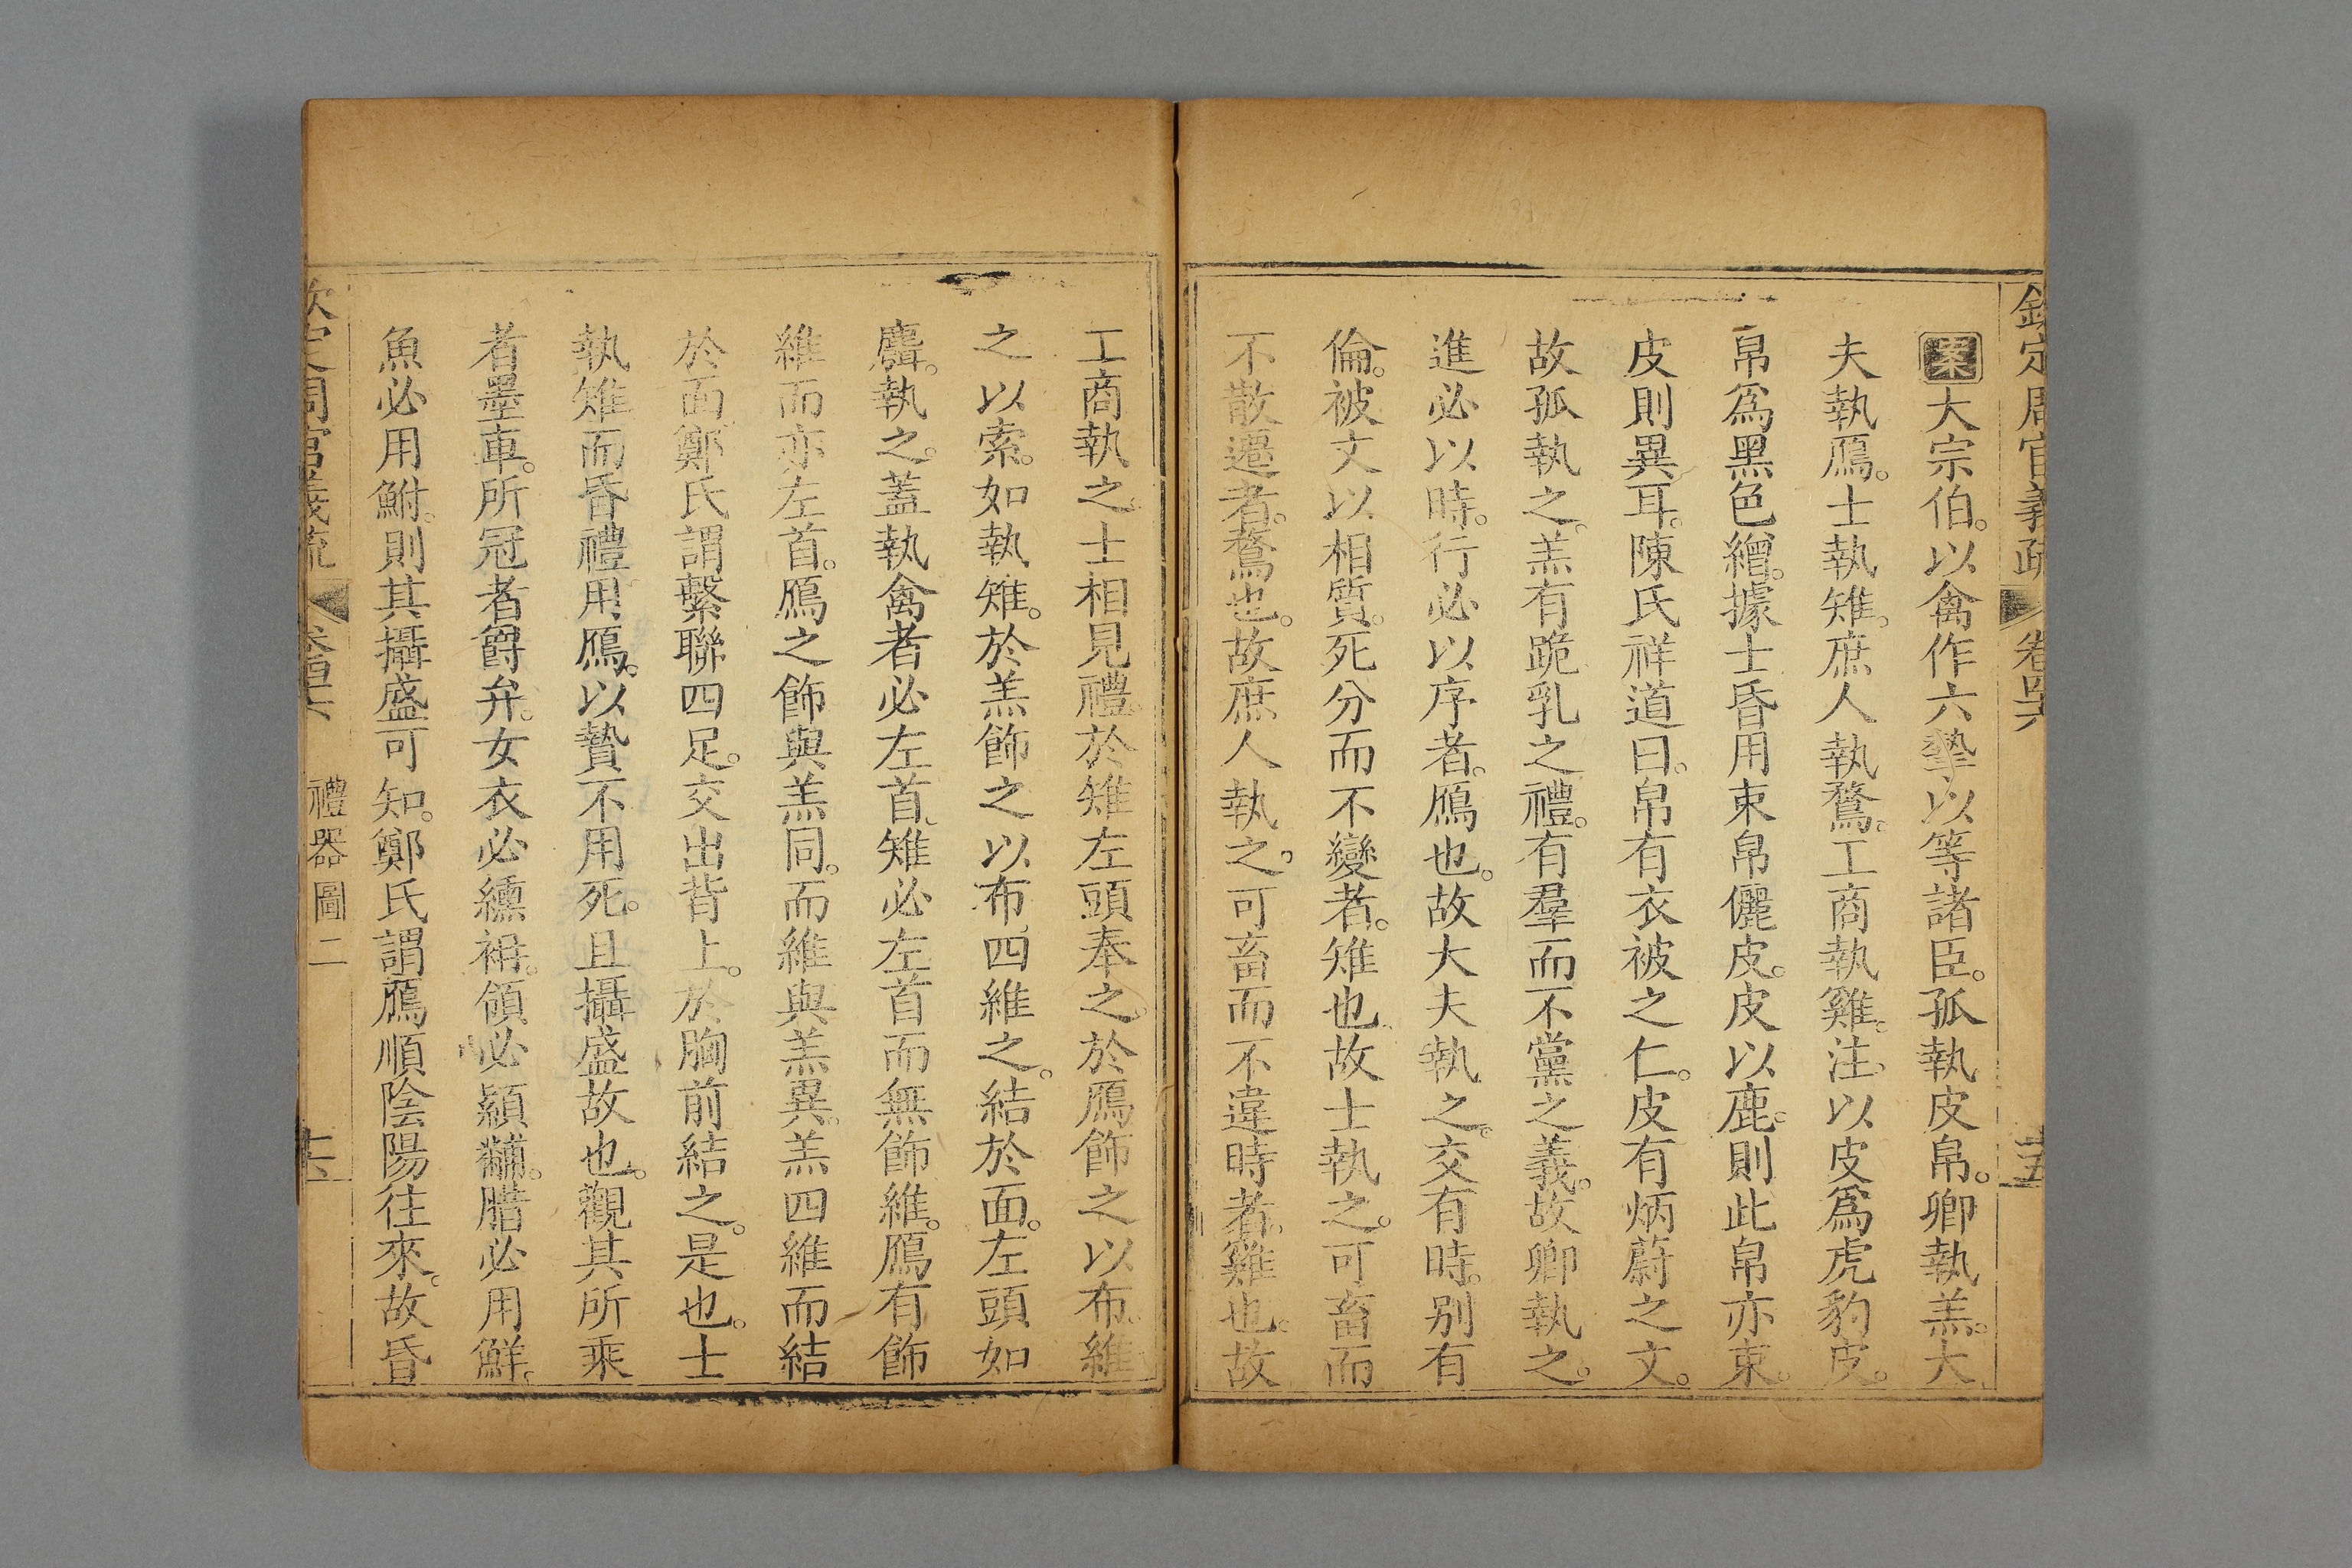 欽定周官義疏 卷四十六 十五
案大宗伯。以禽作六摯以等諸臣。孤執皮帛。卿執羔。大
夫執鴈。士執雉。庶人執鶩。工商執雞。注。以皮爲虎豹皮。
帛爲黑色繒。據士昏用束帛儷皮。皮以鹿。則此帛亦束。
皮則異耳。陳氏祥道曰。帛有衣被之仁。皮有炳蔚之文。
故孤執之。羔有跪乳之禮。有羣而不黨之義。故卿執之。
進必以時。行必以序者。鴈也。故大夫執之。交有時。别有
倫。被文以相質。死分而不變者。雉也。故士執之。可畜而
不散遷者。鶩也。故庶人執之。可畜而不違時者。雞也。故
工商執之。士相見禮。於雉左頭奉之。於鴈飾之以布。維
之以索。如執雉。於羔飾之以布。四維之。結於面。左頭如
麛。執之。蓋執禽者必左首。雉必左首而無飾維。鴈有飾
維而亦左首。鴈之飾與羔同。而維與羔異。羔四維而結
於面。鄭氏謂繫聯四足。交出背上。於胸前結之。是也。士
執雉而昏禮用鴈。以贄不用死。且攝盛故也。觀其所乘
者墨車。所冠者爵弁。女衣必纁袡。領必顈黼。腊必用鮮。
魚必用鮒。則其攝盛可知。鄭氏謂鴈順陰陽往來。故昏
欽定周官義疏 卷四十六 禮器圖二